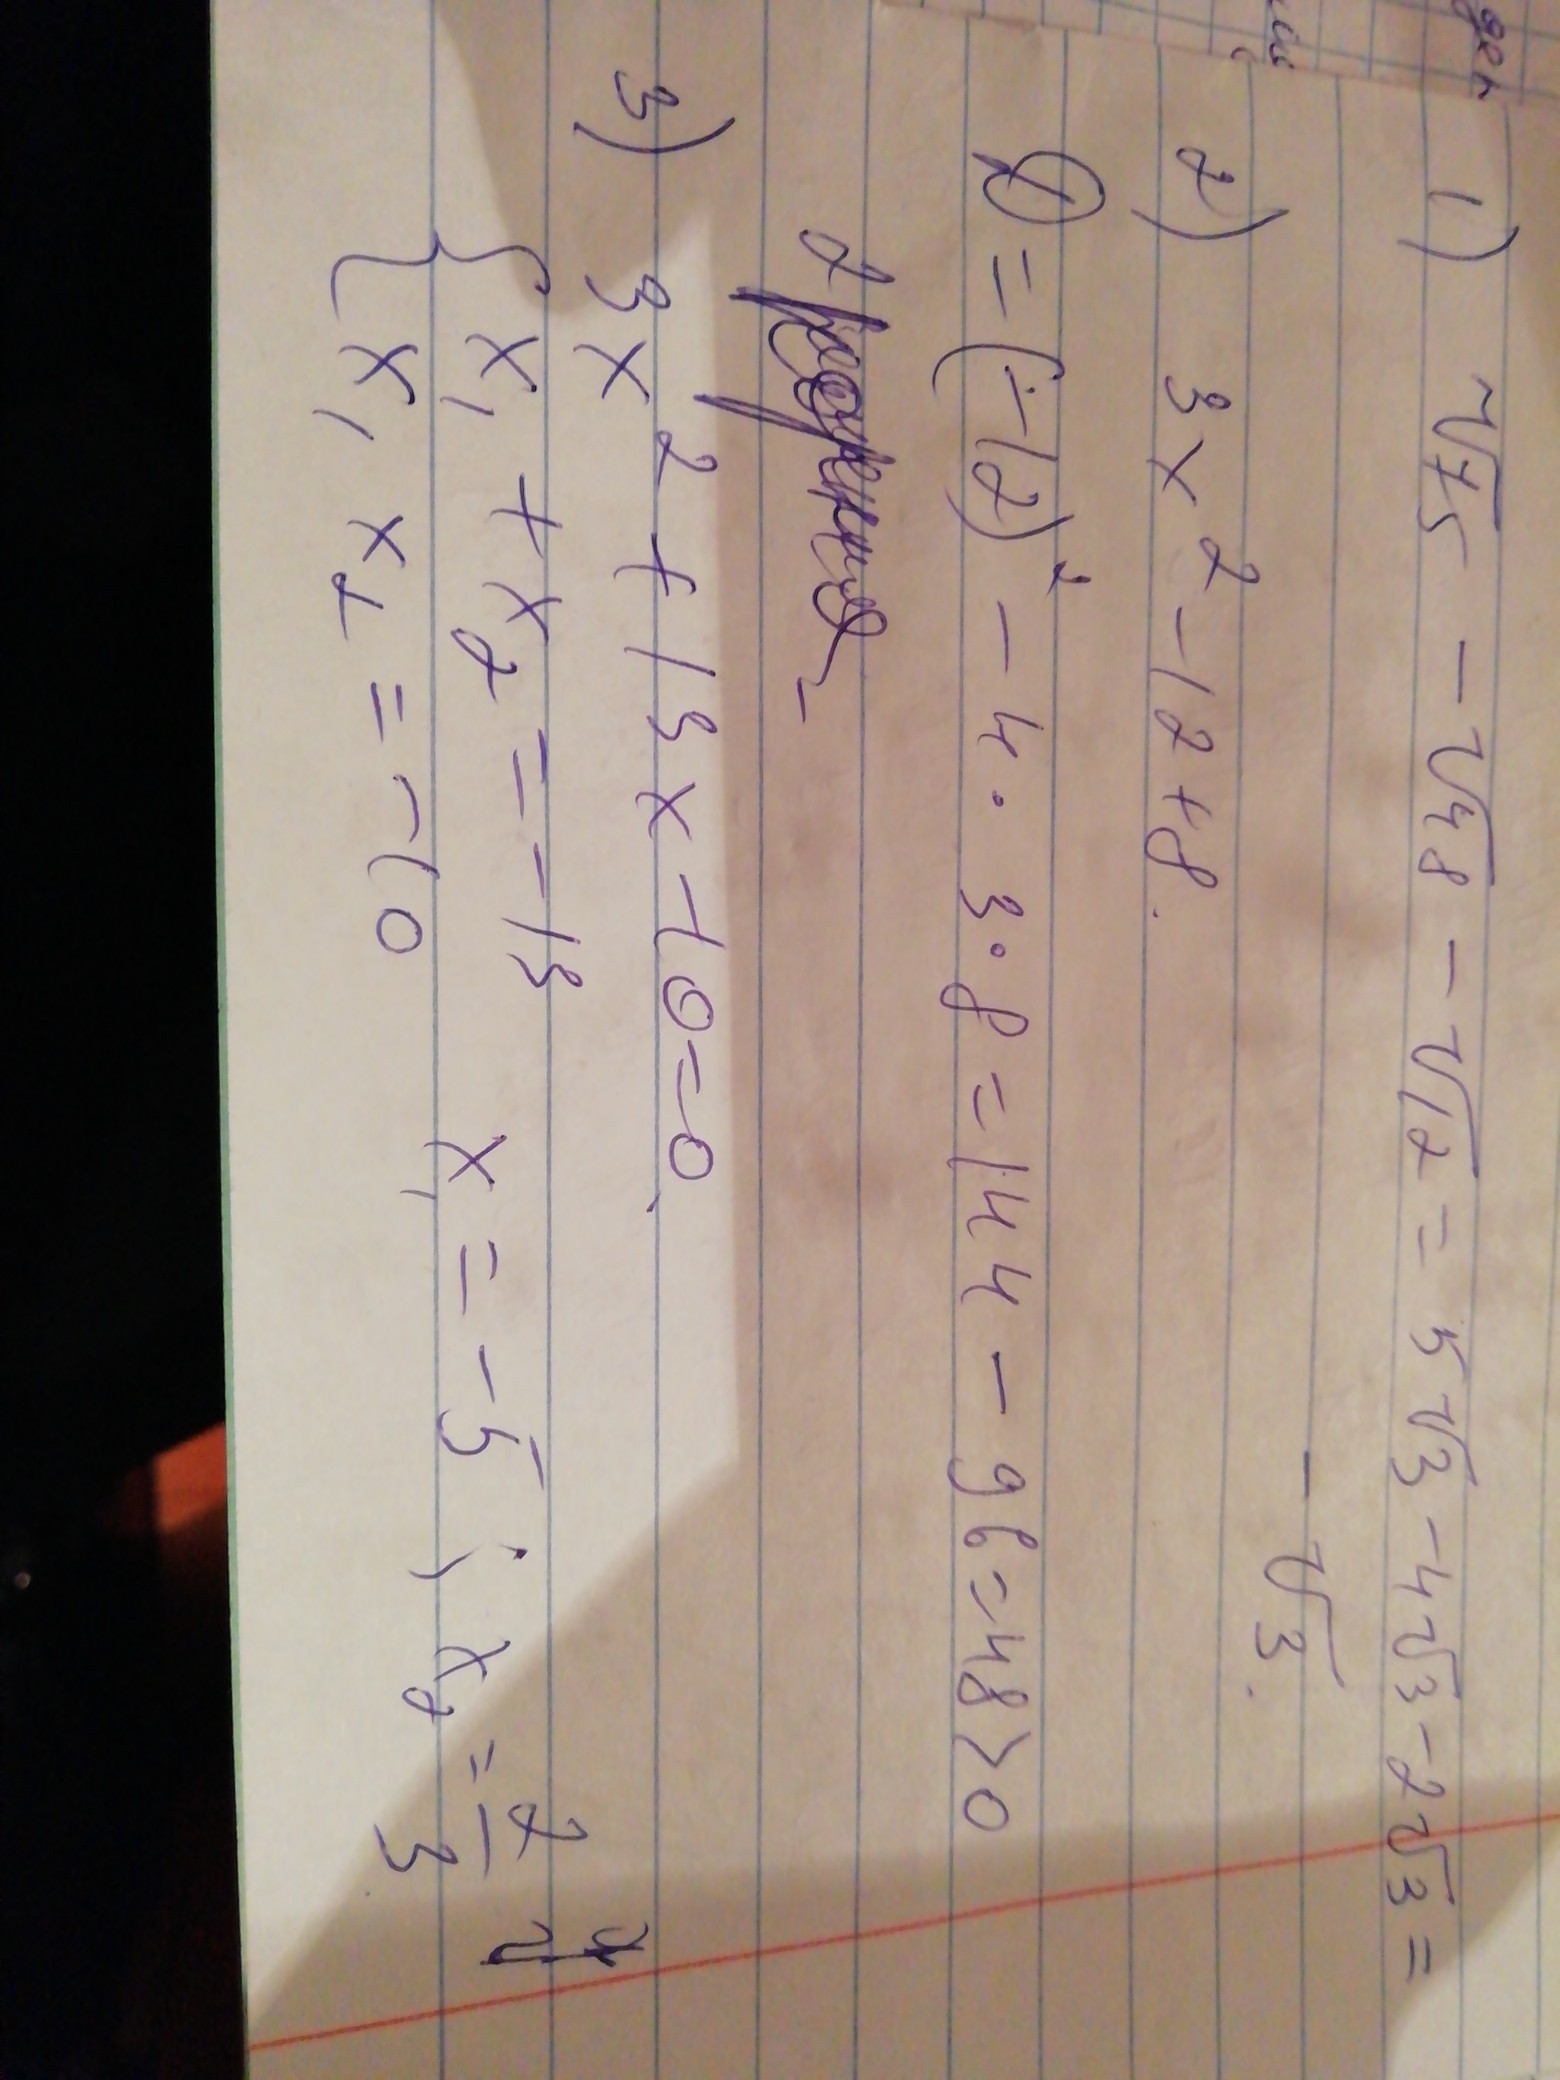 1) √75 - √48 - √12 = 5√3 - 4√3 - 2√3 =
- √3.
2) 3x² - 12 + 8.
D = (-12)² - 4 · 3 · 8 = 144 - 96 = 48 > 0
2
3) 3x² + 13x - 10 = 0
{ x₁ + x₂ = -13
x₁ x₂ = -10
x₁ = -5 ; x₂ = 2/3